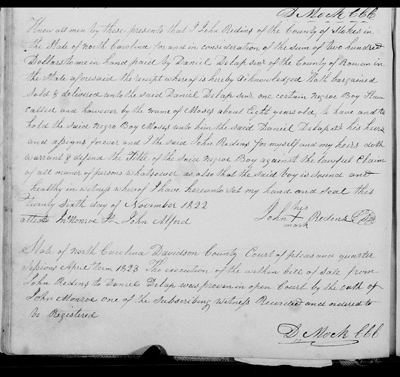 D. Mock CCC
Know all men by these presents that I John Redins of the County of Stokes in
the State of North Carolina for and in consideration of the Sum of two hundred
Dollars to me in hand paid by Daniel Delap senr of the County of Rowan in
the State aforesaid the receipt whereof is hereby acknowledged Hath bargained
Sold & delivered unto the said Daniel Delap senr one certain negroe Boy
called and known by the name of Moses about Eight years old, to have and to
hold the said negroe Boy Moses unto him the said Daniel Delap sr his heirs
and assigns forever and I the said John Redins for myself and my heirs doth
warrant & defend the title of the said negroe Boy against the lawful Claim
of all manner of persons whatsoever as also that the said boy is sound and
healthy in witness whereof I have hereunto set my hand and seal this
twenty sixth day of November 1822
attest Jn Monroe John Alford John his + mark Redins
State of North Carolina Davidson County Court of pleas and quarter
Sessions April Term 1823 The execution of the within bill of Sale from
John Redins to Daniel Delap was proven in open Court by the oath of
John Monroe one of the Subscribing witness Recorded and ordered to
be Registered
D. Mock CCC